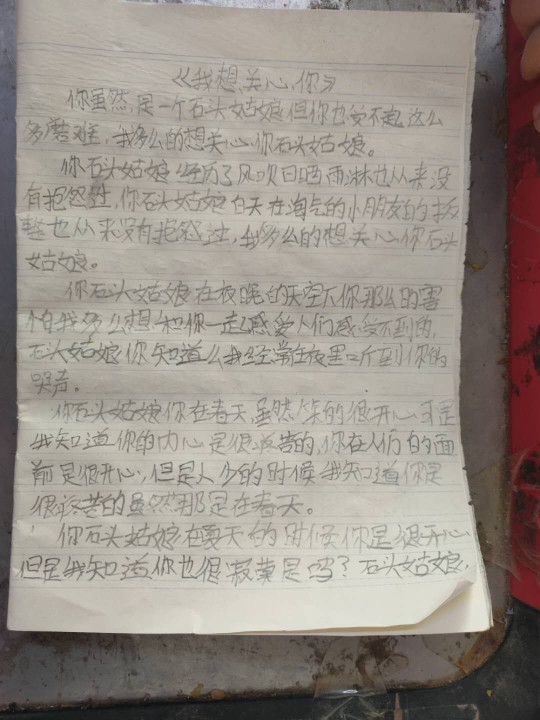 《我想关心你》
你虽然是一个石头姑娘但你也受不起这么
多磨难，我多么的想关心你石头姑娘。
你石头姑娘经历了风吹日晒雨淋也从来没
有抱怨过，你石头姑娘白天在淘气的小朋友的
也从来没有抱怨过，我多么的想关心你石头
姑娘。
你石头姑娘在夜晚的天空下你那么的害
怕我多么想和你一起感受人们感受不到的，
石头姑娘你知道么我经常在夜里听到你的
哭声。
你石头姑娘你在春天虽然笑的很开心可是
我知道你的内心是很痛苦的，你在人们的面
前是很开心，但是人少的时候我知道你是
很痛苦的虽然那是在春天。
你石头姑娘在夏天的时候你是很开心
但是我知道你也很寂寞是吗？石头姑娘，